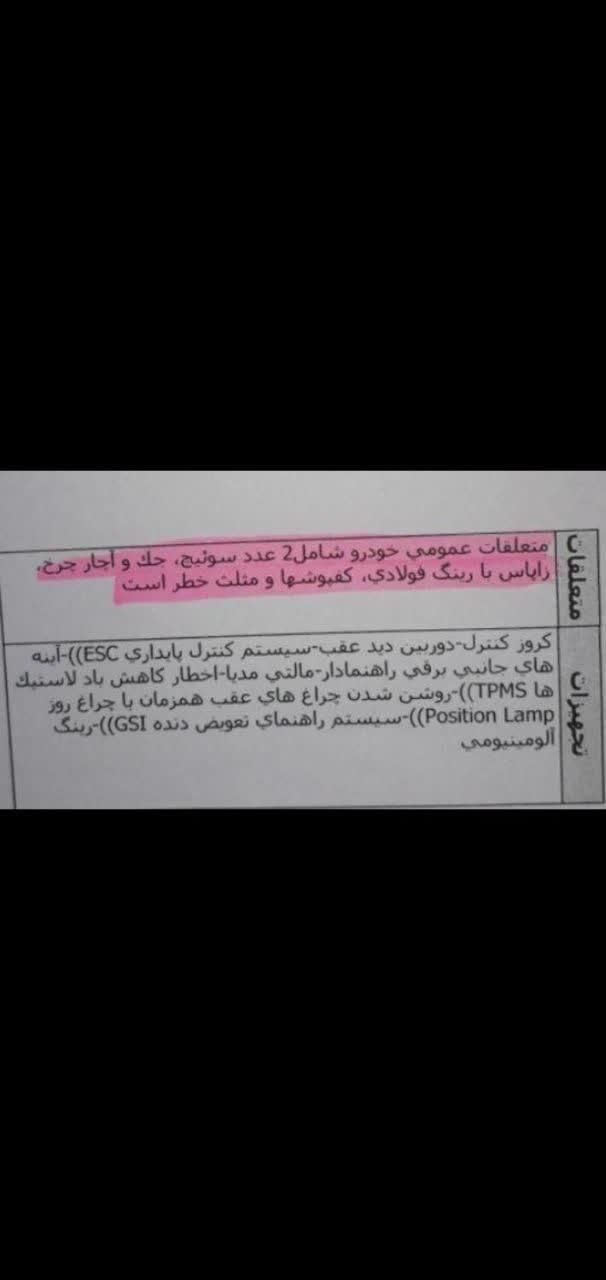 متعلقات
متعلقات عمومي خودرو شامل2 عدد سوئيچ، جك و آچار چرخ،
زاپاس با رينگ فولادي، كفپوشها و مثلث خطر است
تجهيزات
كروز كنترل-دوربين ديد عقب-سيستم كنترل پايداري ESC))-آينه
هاي جانبي برقي راهنمادار-مالتي مديا-اخطار كاهش باد لاستيك
ها TPMS))-روشن شدن چراغ هاي عقب همزمان با چراغ روز
Position Lamp))-سيستم راهنماي تعويض دنده GSI))-رينگ
آلومينيومي